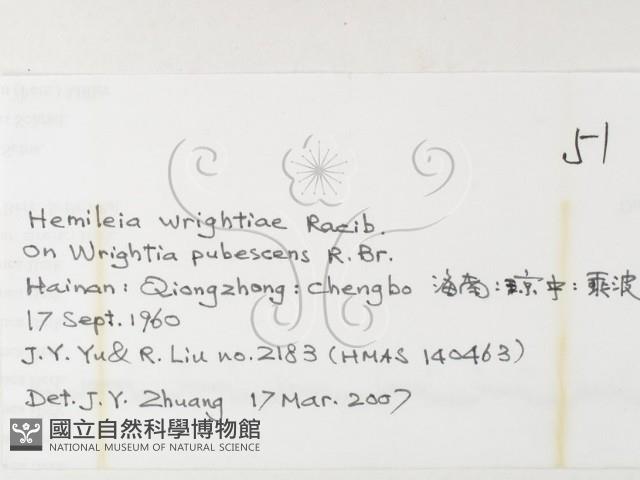 5-1
Hemileia wrightiae Racib.
on Wrightia pubescens R. Br.
Hainan: Qiongzhong: Chengbo 海南:琼中:乘波
17 Sept. 1960
J.Y. Yu & R. Liu no. 2183 (HMAS 140463)
Det. J.Y. Zhuang 17 Mar. 2007
國立自然科學博物館
NATIONAL MUSEUM OF NATURAL SCIENCE